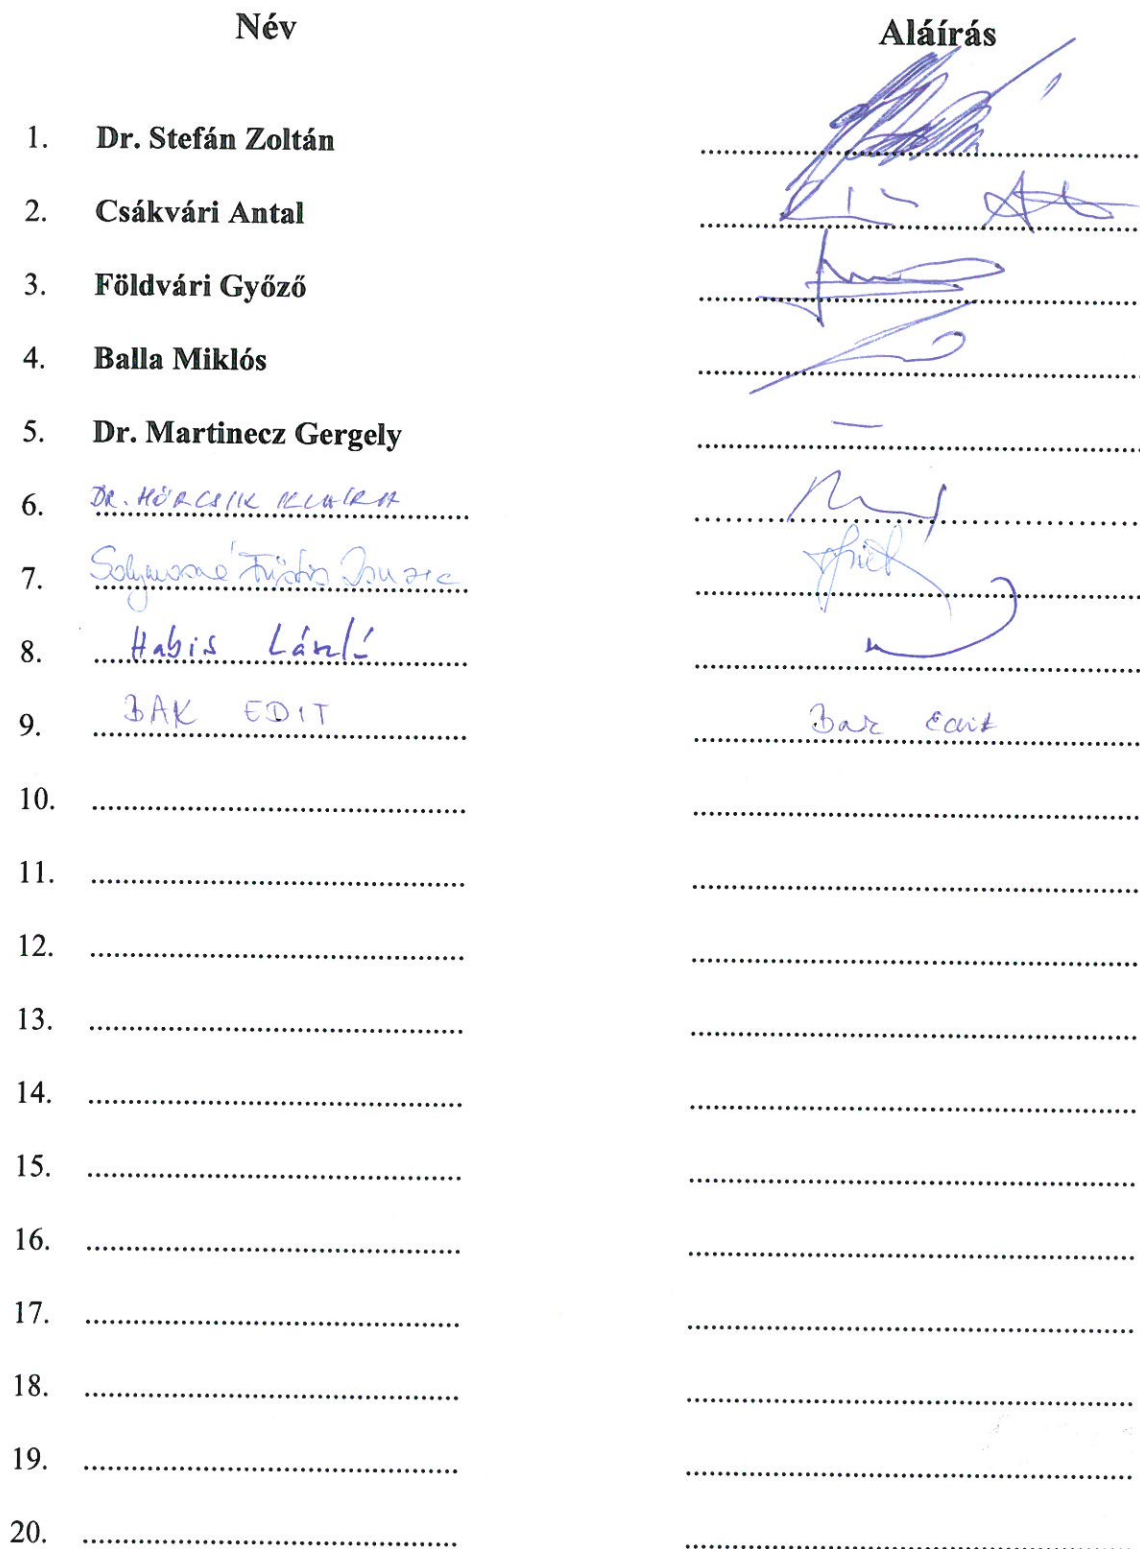 Név Aláírás
1. Dr. Stefán Zoltán
2. Csákvári Antal
3. Földvári Győző
4. Balla Miklós
5. Dr. Martinecz Gergely –
6. DR. HÖRCSIK KLÁRA
7. Solymosné
8. Habis László
9. BAK EDIT Bak Edit
10.
11.
12.
13.
14.
15.
16.
17.
18.
19.
20.